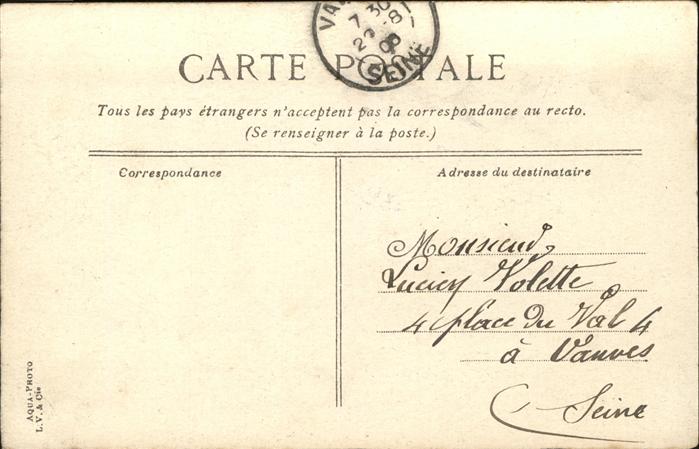 7 30
8
08
SEINE
CARTE POSTALE
Tous les pays étrangers n'acceptent pas la correspondance au recto.
(Se renseigner à la poste.)
Correspondance
Adresse du destinataire
Monsieur
Lucien Volette
4 place du Val 4
à Vanves
Seine
AQUA-PHOTO
L. V. & Cie